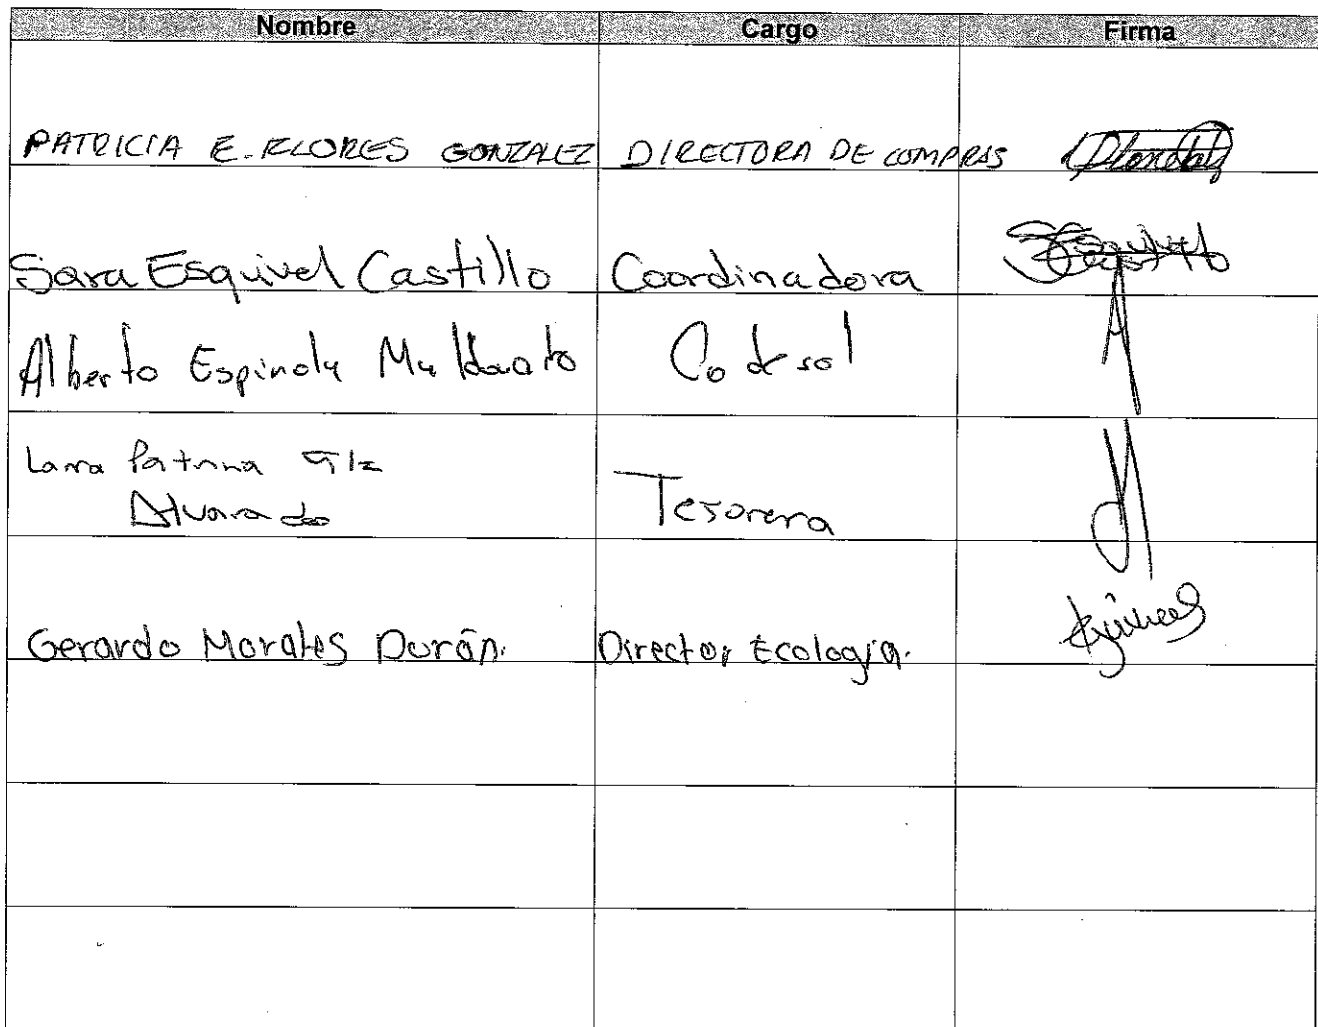 Nombre Cargo Firma
PATRICIA E. FLORES GONZALEZ DIRECTORA DE COMPRAS
Sara Esquivel Castillo Coordinadora Esquivel Castillo
Alberto Espinola Maldonado Codesol
Patricia Glz
Alvarado Tesorera
Gerardo Morales Durán. Director Ecología.